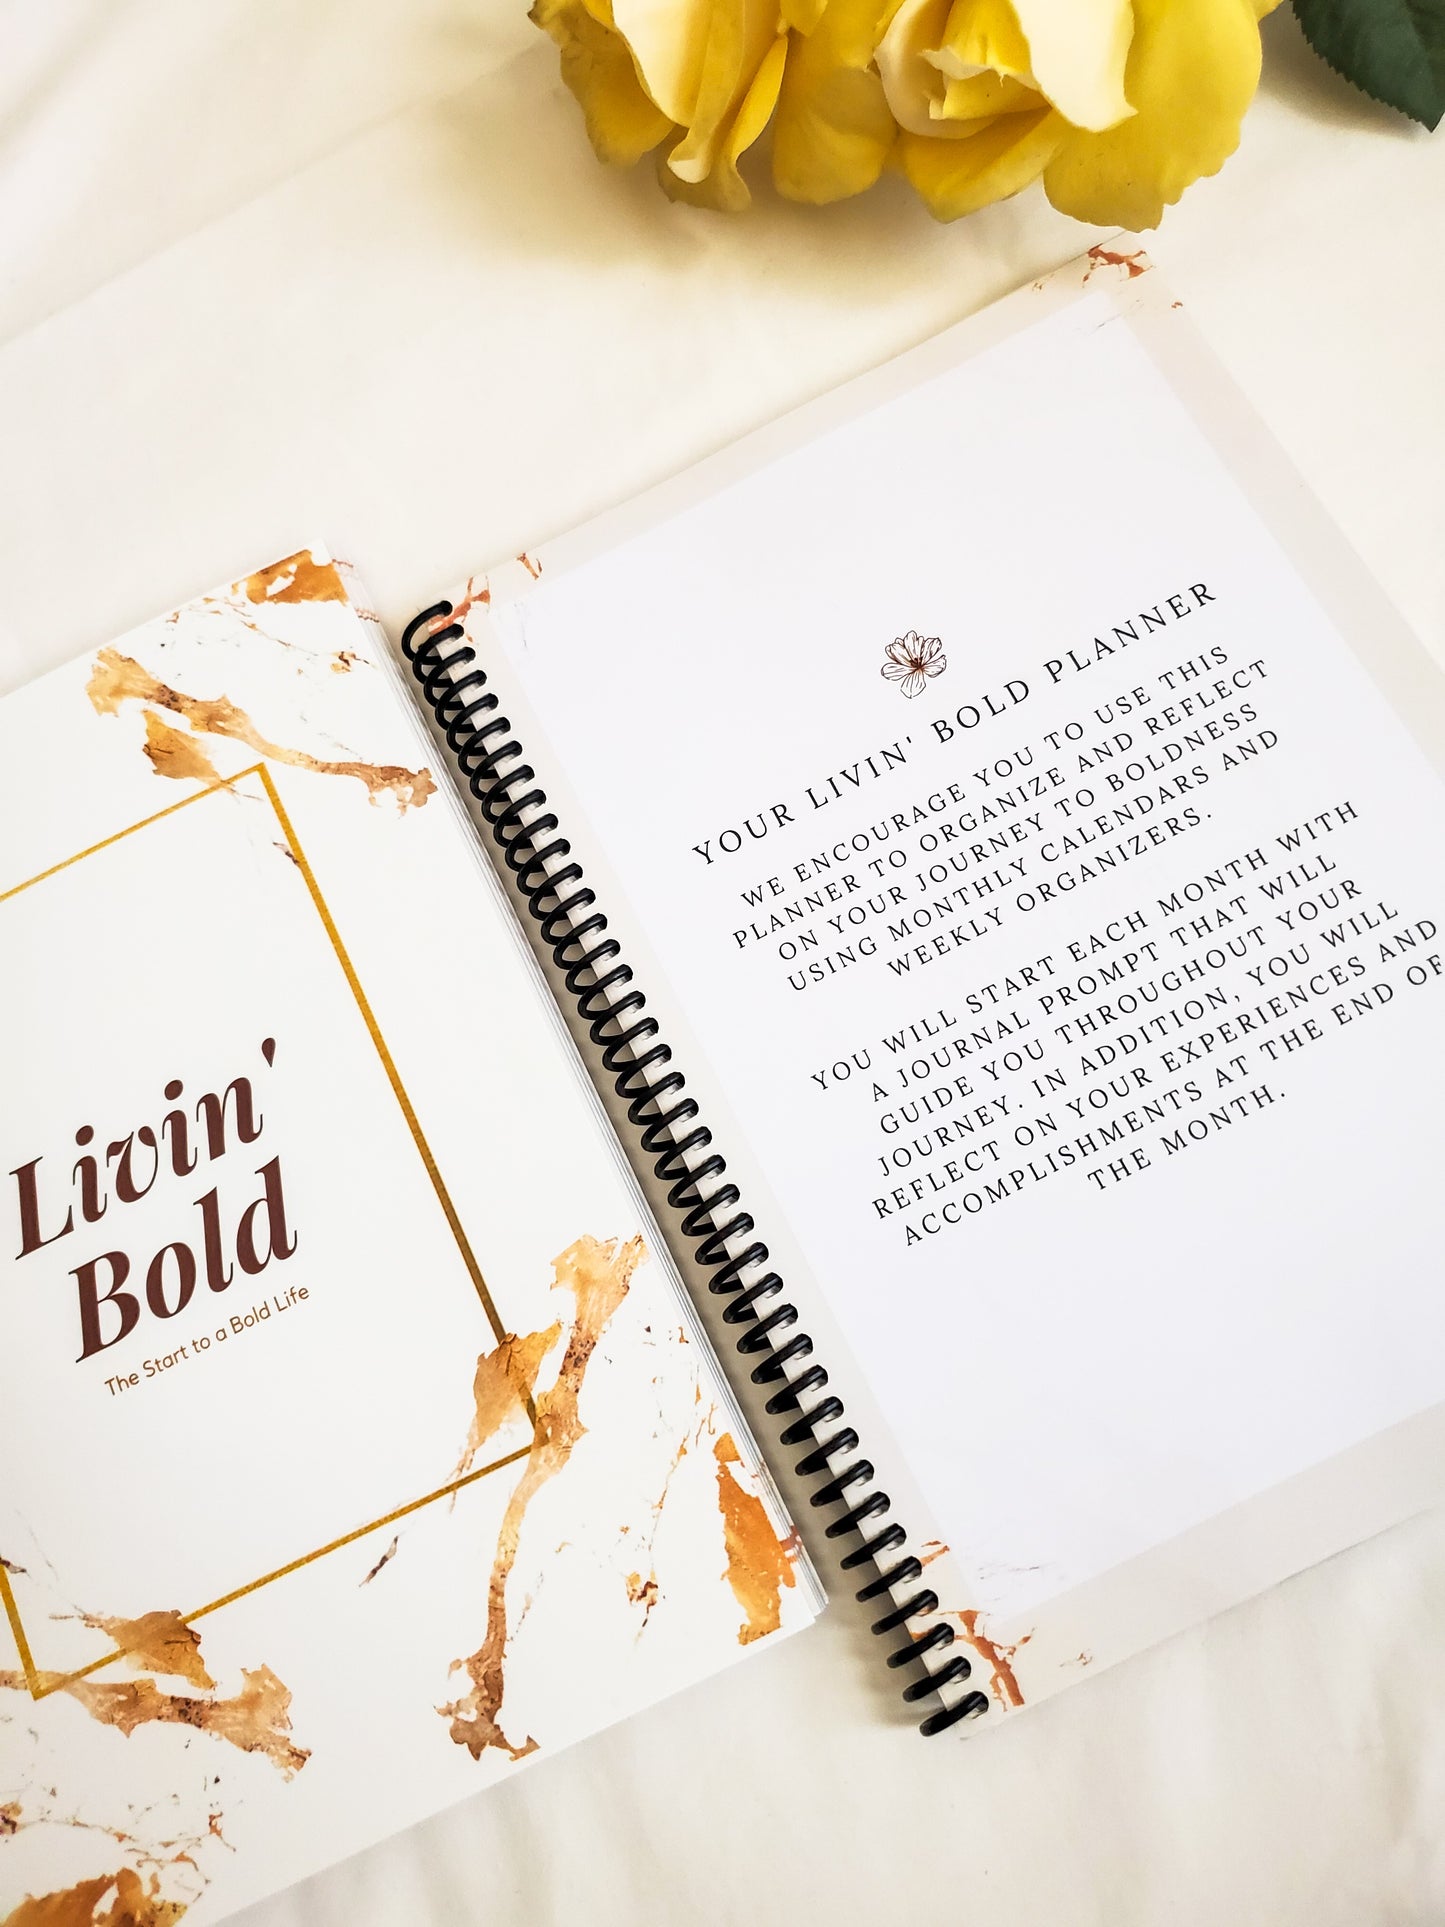 Livin'
Bold
The Start to a Bold Life
YOUR LIVIN' BOLD PLANNER
WE ENCOURAGE YOU TO USE THIS
PLANNER TO ORGANIZE AND REFLECT
ON YOUR JOURNEY TO BOLDNESS
USING MONTHLY CALENDARS AND
WEEKLY ORGANIZERS.
YOU WILL START EACH MONTH WITH
A JOURNAL PROMPT THAT WILL
GUIDE YOU THROUGHOUT YOUR
JOURNEY. IN ADDITION, YOU WILL
REFLECT ON YOUR EXPERIENCES AND
ACCOMPLISHMENTS AT THE END OF
THE MONTH.